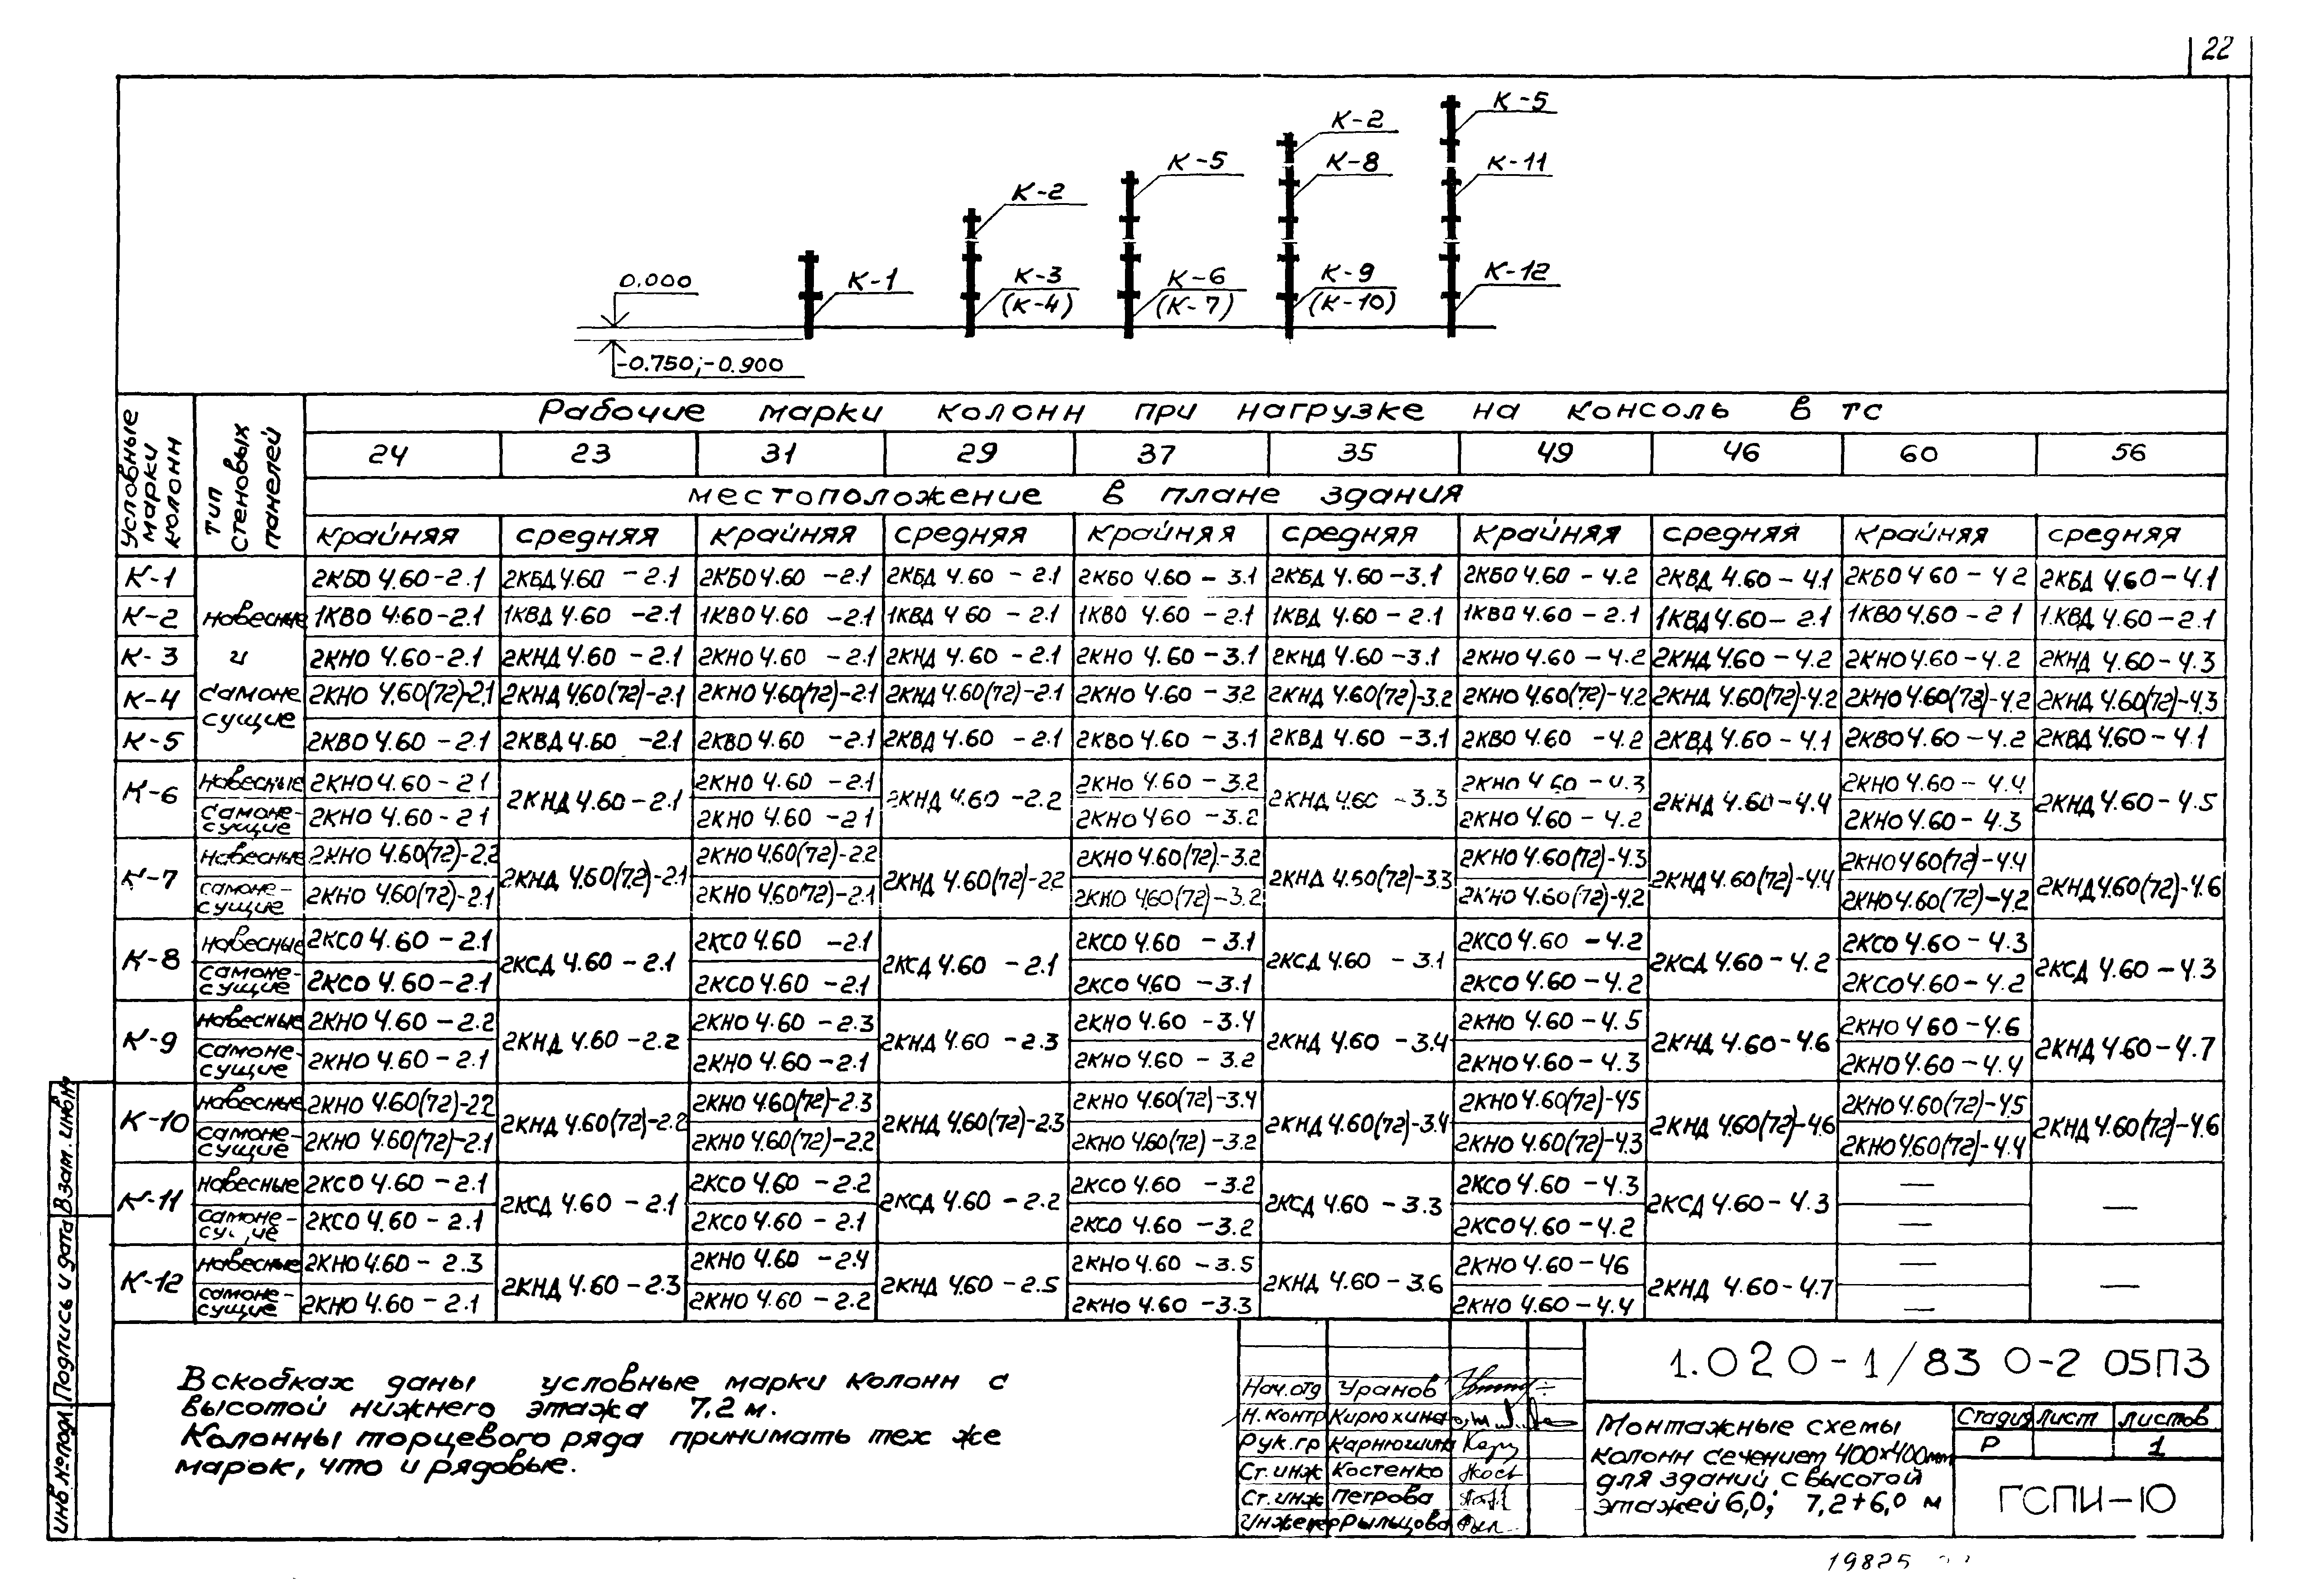 22
К-5
К-2
К-5
К-8
К-11
К-2
0.000
К-1
К-3
(К-4)
К-6
(К-7)
К-9
(К-10)
К-12
-0.750; -0.900
Условные марки колонн
Тип стеновых панелей
Рабочие марки колонн при нагрузке на консоль в тс
24 23 31 29 37 35 49 46 60 56
местоположение в плане здания
крайняя средняя крайняя средняя крайняя средняя крайняя средняя крайняя средняя
К-1 2КБО 4.60-2.1 2КБД 4.60-2.1 2КБО 4.60-2.1 2КБД 4.60-2.1 2КБО 4.60-3.1 2КБД 4.60-3.1 2КБО 4.60-4.2 2КВД 4.60-4.1 2КБО 4 60-4 2 2КБД 4.60-4.1
К-2 навесные 1КВО 4.60-2.1 1КВД 4.60-2.1 1КВО 4.60-2.1 1КВД 4 60-2.1 1КВО 4.60-2.1 1КВД 4.60-2.1 1КВО 4.60-2.1 1КВД 4.60-2.1 1КВО 4.60-2 1 1.КВД 4.60-2.1
К-3 и 2КНО 4.60-2.1 2КНД 4.60-2.1 2КНО 4.60-2.1 2КНД 4.60-2.1 2КНО 4.60-3.1 2КНД 4.60-3.1 2КНО 4.60-4.2 2КНД 4.60-4.2 2КНО 4.60-4.2 2КНД 4.60-4.3
К-4 самоне 2КНО 4.60(72)-2.1 2КНД 4.60(72)-2.1 2КНО 4.60(72)-2.1 2КНД 4.60(72)-2.1 2КНО 4.60-3.2 2КНД 4.60(72)-3.2 2КНО 4.60(72)-4.2 2КНД 4.60(72)-4.2 2КНО 4.60(72)-4.2 2КНД 4.60(72)-4.3
сущие
К-5 2КВО 4.60-2.1 2КВД 4.60-2.1 2КВО 4.60-2.1 2КВД 4.60-2.1 2КВО 4.60-3.1 2КВД 4.60-3.1 2КВО 4.60-4.2 2КВД 4.60-4.1 2КВО 4.60-4.2 2КВД 4.60-4.1
К-6 навесные 2КНО 4.60-2 1 2КНД 4.60-2.1 2КНО 4.60-2.1 2КНД 4.60-2.2 2КНО 4.60-3.2 2КНД 4.60-3.3 2КНО 4 60-4.3 2КНД 4.60-4.4 2КНО 4.60-4.4 2КНД 4.60-4.5
самоне-сущие 2КНО 4.60-2 1 2КНО 4.60-2 1 2КНО 4 60-3.2 2КНО 4.60-4.2 2КНО 4.60-4.3
К-7 навесные 2КНО 4.60(72)-2.2 2КНД 4.60(72)-2.1 2КНО 4.60(72)-2.2 2КНД 4.60(72)-2.2 2КНО 4.60(72)-3.2 2КНД 4.60(72)-3.3 2КНО 4.60(72)-4.3 2КНД 4.60(72)-4.4 2КНО 4.60(72)-4.4 2КНД 4.60(72)-4.6
самоне-сущие 2КНО 4.60(72)-2.1 2КНО 4.60(72)-2.1 2КНО 4.60(72)-3.2 2КНО 4.60(72)-4.2 2КНО 4.60(72)-4.2
К-8 навесные 2КСО 4.60-2.1 2КСД 4.60-2.1 2КСО 4.60-2.1 2КСД 4.60-2.1 2КСО 4.60-3.1 2КСД 4.60-3.1 2КСО 4.60-4.2 2КСД 4.60-4.2 2КСО 4.60-4.3 2КСД 4.60-4.3
самоне-сущие 2КСО 4.60-2.1 2КСО 4.60-2.1 2КСО 4.60-3.1 2КСО 4.60-4.2 2КСО 4.60-4.2
К-9 навесные 2КНО 4.60-2.2 2КНД 4.60-2.2 2КНО 4.60-2.3 2КНД 4.60-2.3 2КНО 4.60-3.4 2КНД 4.60-3.4 2КНО 4.60-4.5 2КНД 4.60-4.6 2КНО 4 60-4.6 2КНД 4.60-4.7
самоне-сущие 2КНО 4.60-2.1 2КНО 4.60-2.1 2КНО 4.60-3.2 2КНО 4.60-4.3 2КНО 4.60-4.4
К-10 навесные 2КНО 4.60(72)-2.2 2КНД 4.60(72)-2.2 2КНО 4.60(72)-2.3 2КНД 4.60(72)-2.3 2КНО 4.60(72)-3.4 2КНД 4.60(72)-3.4 2КНО 4.60(72)-4.5 2КНД 4.60(72)-4.6 2КНО 4.60(72)-4.5 2КНД 4.60(72)-4.6
самоне-сущие 2КНО 4.60(72)-2.1 2КНО 4.60(72)-2.2 2КНО 4.60(72)-3.2 2КНО 4.60(72)-4.3 2КНО 4.60(72)-4.4
К-11 навесные 2КСО 4.60-2.1 2КСД 4.60-2.1 2КСО 4.60-2.2 2КСД 4.60-2.2 2КСО 4.60-3.2 2КСД 4.60-3.3 2КСО 4.60-4.3 2КСД 4.60-4.3 — —
самоне- 2КСО 4.60-2.1 2КСО 4.60-2.1 2КСО 4.60-3.2 2КСО 4.60-4.2 —
К-12 навесные 2КНО 4.60-2.3 2КНД 4.60-2.3 2КНО 4.60-2.4 2КНД 4.60-2.5 2КНО 4.60-3.5 2КНД 4.60-3.6 2КНО 4.60-4.6 2КНД 4.60-4.7 — —
самоне-сущие 2КНО 4.60-2.1 2КНО 4.60-2.2 2КНО 4.60-3.3 2КНО 4.60-4.4 —
В скобках даны условные марки колонн с
высотой нижнего этажа 7,2 м.
Колонны торцевого ряда принимать тех же
марок, что и рядовые.
Инв № подл. Подпись и дата Взам. инв №
Нач.отд Уранов
Н.контр Кирюхина
Рук.гр Карнюшина
Ст.инж Костенко
Ст.инж Петрова
Инженер Рыльцова
1.020-1/83 0-2 05ПЗ
Монтажные схемы
колонн сечением 400×400мм
для зданий с высотой
этажей 6,0; 7,2+6,0 м
Стадия Лист Листов
Р 1
ГСПИ-10
19825